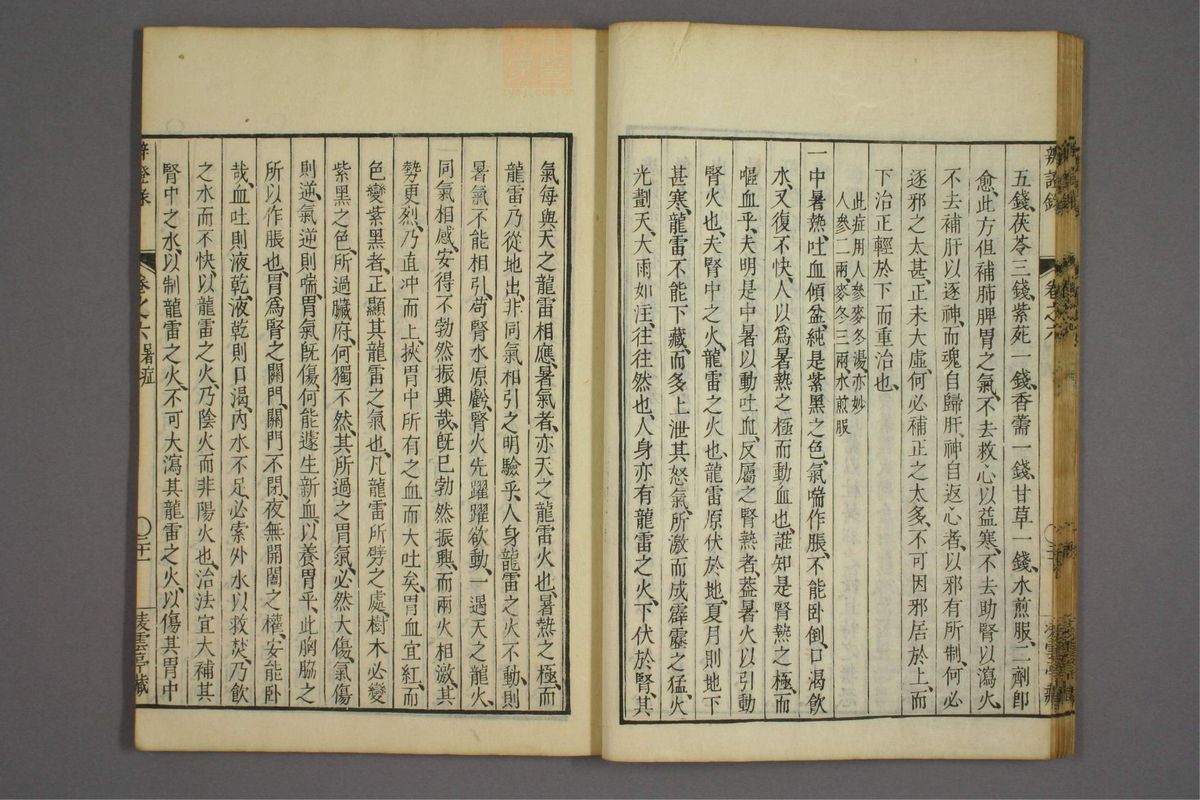 辨證錄　卷之六
五錢茯苓三錢紫死一錢香薷一錢甘草一錢水煎服二劑卽
愈此方但補肺脾胃之氣不去救心以益寒不去助腎以瀉火
不去補肝以逐神而魂自歸肝神自返心者以邪有所制何必
逐邪之太甚正未大虛何必補正之太多不可因邪居於上而
下治正輕於下而重治也
此症用人參麥冬湯亦妙
人參二兩麥冬三兩水煎服
一中暑熱吐血傾盆純是紫黑之色氣喘作脹不能卧倒口渴飲
水又復不快人以爲暑熱之極而動血也誰知是腎熱之極而
嘔血乎夫明是中暑以動吐血反屬之腎熱者葢暑火以引動
腎火也夫腎中之火龍雷之火也龍雷原伏於地夏月則地下
甚寒龍雷不能下藏而多上泄其怒氣所激而成霹靂之猛火
光劃天大雨如注往往然也人身亦有龍雷之火下伏於腎其
氣每與天之龍雷相應暑氣者亦天之龍雷火也暑熱之極而
龍雷乃從地出非同氣相引之明驗乎人身龍雷之火不動則
暑氣不能相引苟腎水原虧腎火先躍躍欲動一遇天之龍火
同氣相感安得不勃然振興哉既已勃然振興而兩火相激其
勢更烈乃直冲而上挾胃中所有之血而大吐矣胃血宜紅而
色變紫黑者正顯其龍雷之氣也凡龍雷所劈之處樹木必變
紫黑之色所過臟府何獨不然其所過之胃氣必然大傷氣傷
則逆氣逆則喘胃氣既傷何能遽生新血以養胃乎此胸脇之
所以作脹也胃爲腎之關門關門不閉夜無開闔之權安能卧
哉血吐則液乾液乾則口渴內水不足必索外水以救焚乃飲
之水而不快以龍雷之火乃陰火而非陽火也治法宜大補其
腎中之水以制龍雷之火不可大瀉其龍雷之火以傷其胃中
卷之六　暑症　凌雲亭藏